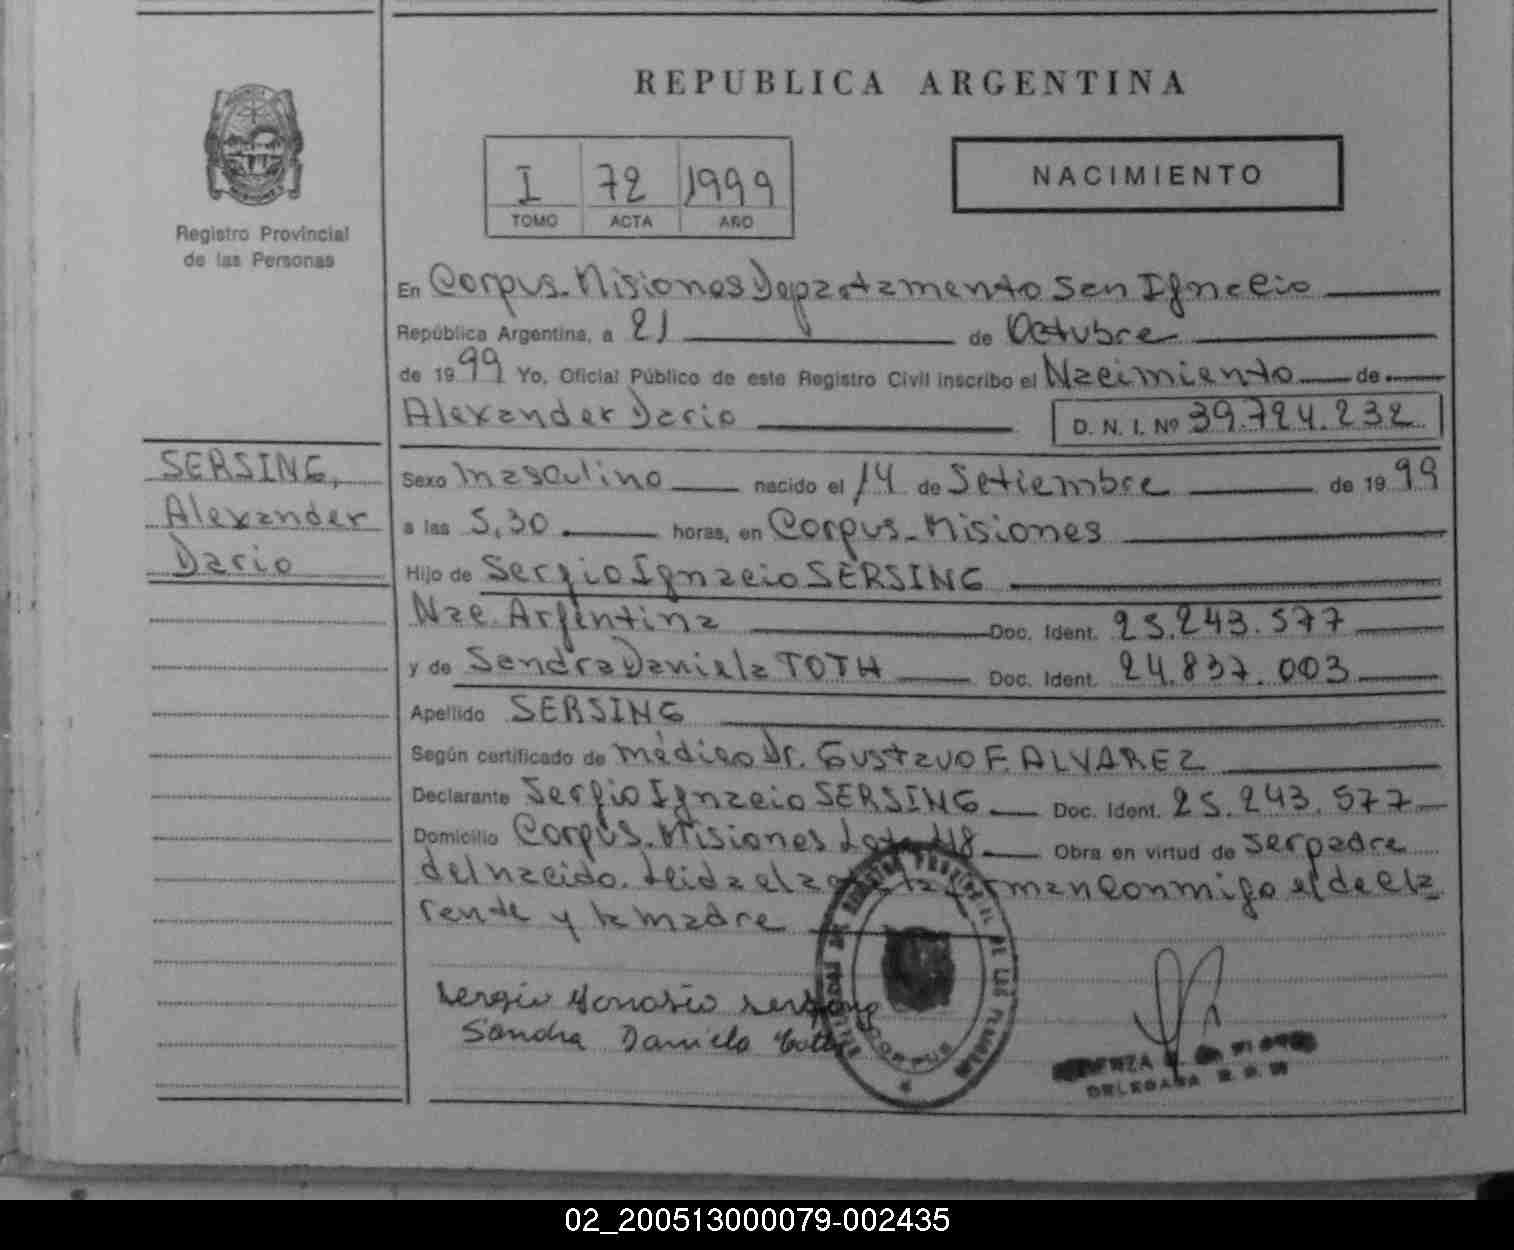 REPUBLICA ARGENTINA
I 72 1999
TOMO ACTA AÑO
NACIMIENTO
Registro Provincial
de las Personas
En Corpus-Misiones Departamento San Ignacio
República Argentina, a 21 de Octubre
de 1999 Yo, Oficial Público de este Registro Civil inscribo el Nacimiento de
Alexander Dario D. N. I. Nº 39.724.232
SERSING,
Alexander
Dario
Sexo masculino nacido el 14 de Setiembre de 1999
a las 5,30 horas, en Corpus-Misiones
Hijo de Sergio Ignacio SERSING
Nac. Argentina Doc. Ident. 25.243.577
y de Sandra Daniela TOTH Doc. Ident. 24.837.003
Apellido SERSING
Según certificado de médico Dr. Gustavo F. ALVAREZ
Declarante Sergio Ignacio SERSING Doc. Ident. 25.243.577
Domicilio Corpus-Misiones Lote 118 Obra en virtud de ser padre
del nacido. Leida el acta firman conmigo el decla
rante y la madre
Sergio Ignasio Sersing
Sandra Daniela Toth
CORPUS
DELEGADA
02_200513000079-002435